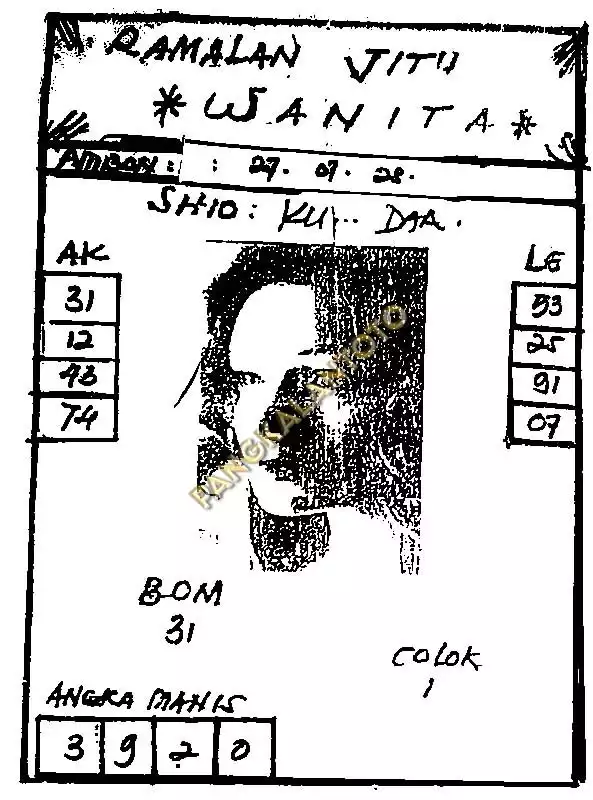 RAMALAN JITU
*WANITA*
AMBON : : 27. 07. 28.
SHIO: KU... DAA.
AK
31
12
43
74
LE
53
25
91
07
PANGKALANTOTO
BOM
31
COLOK
1
ANGKA MANIS
3 9 2 0